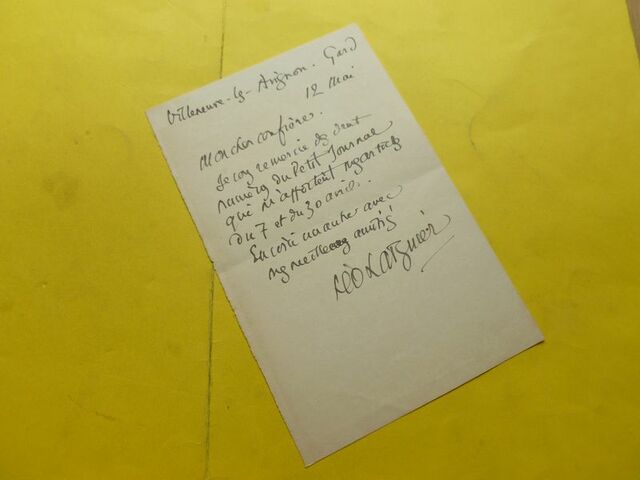 Villeneuve-lg-Avignon. Gard
12 Mai
Mon cher confrère.
Je vous remercie dg deux
numéros du Petit Journal
qui m'apportent mg articlg
du 7 et du 30 avril.
En voici un autre avec
mg meilleurg amitiés!
Léo Larguier